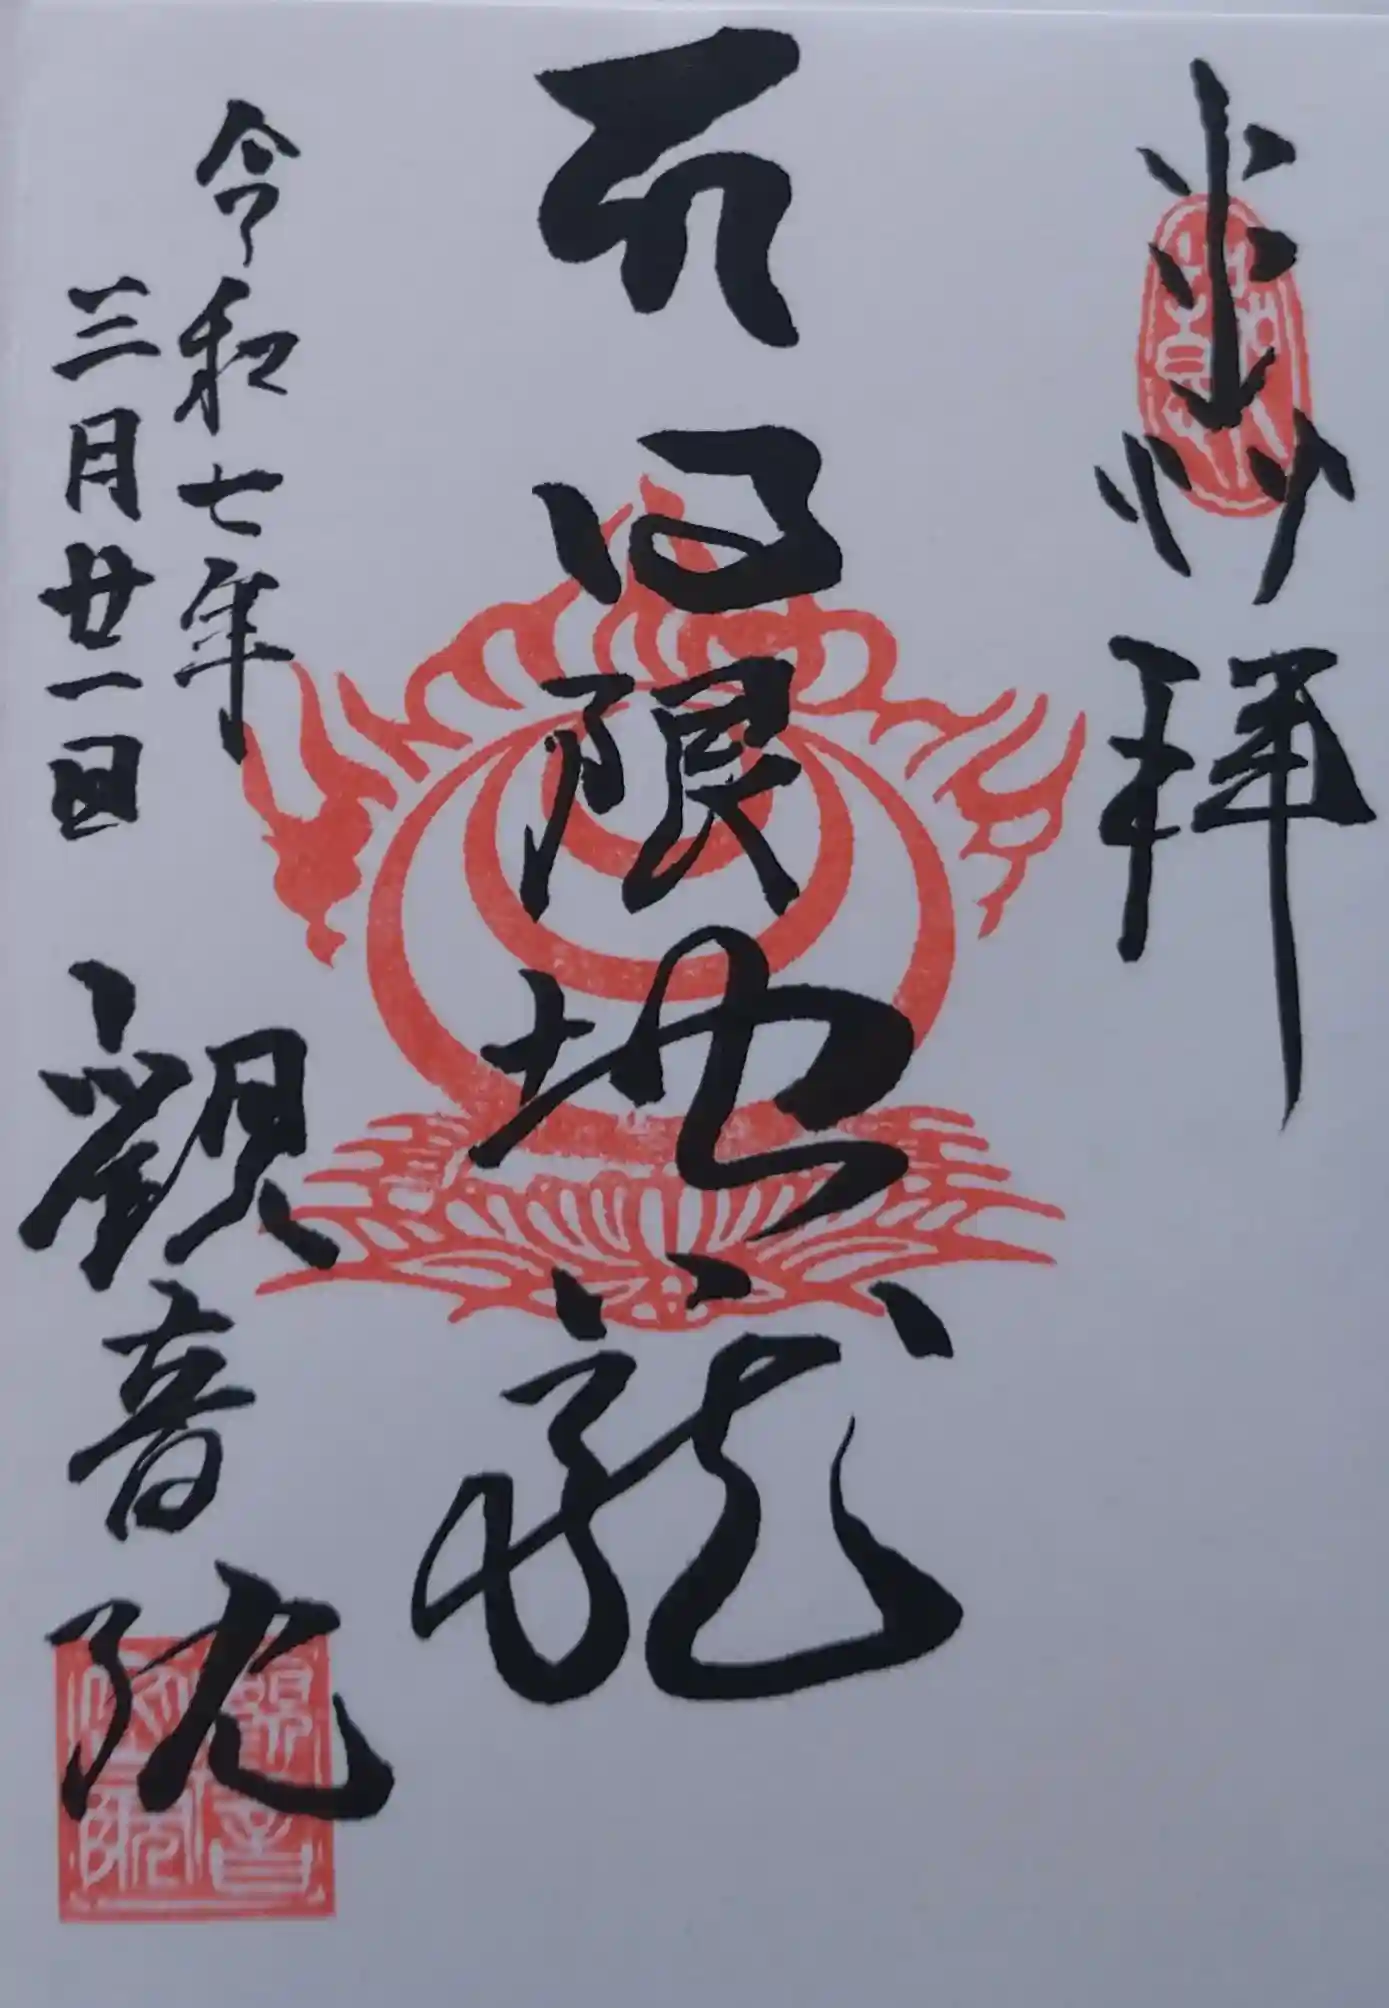 奉拝
日限地蔵
令和七年
三月廿一日
観音院